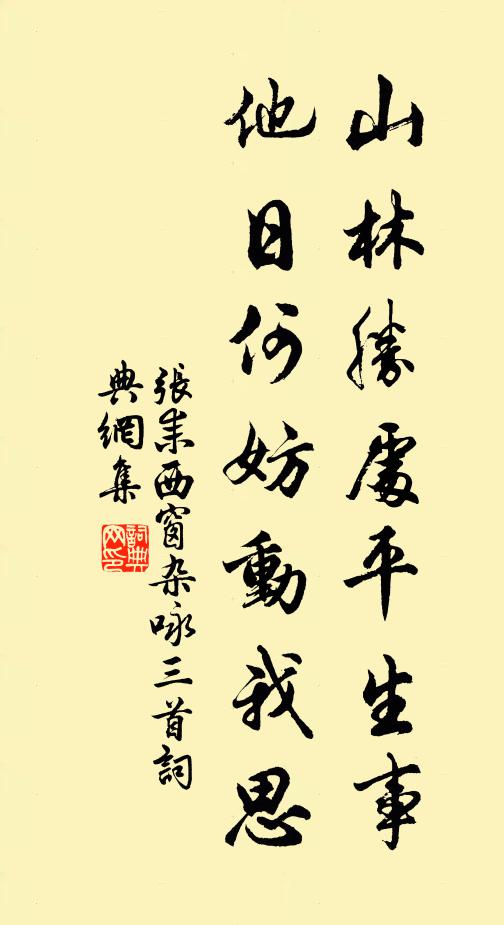 山林勝處平生事
他日何妨動我思
張耒西窗杂咏三首詞
典網集
詞典
网印